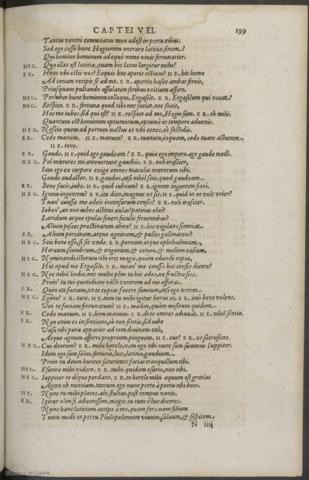 CAPTEIVEI. 199
Tantus ventri commeatus meo adest in portu cibus.
Sed ego cesso hunc Hegionem onerare lætitia senem?
Qui homine hominum adæque nemo vivit fortunatior.
HEG. Quæ illæc est lætitia, quam hic lætus largitur mihi?
ER. Heus ubi estis vos? ecquis hoc aperit ostium? HE. hic homo
Ad cœnam recipit se ad me. ER. aperite hasce ambas foreis,
Priusquam pultando assulatim foribus exitium affero.
HEG. Perlubet hunc hominem colloqui, Ergasile. ER. Ergasilum qui vocat?
HEG. Respice. ER. fortuna quod tibi nec facit, nec faciet,
Hoc me iubes. sed quis est? HE. respice ad me, Hegio sum. ER. oh mihi.
Quantum est hominum optumorum, optume in tempore advenis.
HEG. Nescio quem ad portum nactus es ubi cenes, eo fastidis.
ER. Cedo manum. HE. manum? ER. manum, inquam, cedo tuam actutum.
HE. tene.
ER. Gaude. HE. quid ego gaudeam? ER. quia ego impero, age gaude modo.
HEG. Pol mœrores mi antevertunt gaudiis. ER. noli irascier,
Iam ego ex corpore exigo omnes maculas mœrorum tibi.
Gaude audacter. HE. gaudeo, etsi nihil scio, quod gaudeam.
ER. Bene facis, iube. HE. quid iubeam? ER. ignem ingentem fieri.
HEG. Ignem ingentem? ER. ita dico, magnus ut sit. HE. quid me vulturi
Tuan' caussa me adeis incensurum censes? ER. noli irascier.
Iuben', an non iubes astitui aulas? patinas elui?
Laridum atque epulas foveri foculis ferventibus?
Alium pisces præstinatum abire? HE. hic vigilans somniat.
ER. Alium porcinam, atque agninam, & pullos gallinaceos?
HEG. Scis bene esse, si sit unde. ER. pernam atque ophthalmiam,
Horæum scombrum, & trigonum, & cetum, & mollem caseum.
HEG. Nominandi istorum tibi erit magis, quam edundi copia,
Hic apud me Ergasile. ER. mean' me caussa hoc censes dicere?
HEG. Nec nihil hodie, nec multo plus tu hic edes, ne frustra sis.
Proin' tu tui quotidiani victi ventrem ad me afferas.
ER. Quin ita faciam, ut te cupias facere sumtum, etsi ego vetem.
HEG. Egone? ER. tute. HE. tum tu mihi igitur herus es. ER. imo bene volens.
Vin' te faciam fortunatum? HE. malim, quàm miserum quidem.
ER. Cedo manum. HE. hem manum. ER. di te omnes adiuvant. HE. nihil sentio.
ER. Non enim es in senticeto, eo non sentis. sed iube
Vasa tibi pura apparari ad rem divinam cito,
Atque agnum afferri proprium pinguem. HE. cur? ER. ut sacrufices.
HEG. Cui deorum? ER. mihi hercle, nam ego tibi nunc sum summus Iuppiter.
Idem ego sum salus, fortuna, lux, lætitia, gaudium.
Proin tu deum hunc saturitate facias tranquillum tibi.
HEG. Esurire mihi videre. ER. mihi quidem esurio, non tibi.
HEG. Iuppiter te dique perdant. ER. te hercle mihi æquum est gratias
Agere ob nuntium. tantum ego nunc porto à portu tibi boni.
HEG. Nunc tu mihi places. abi stultus, post tempus venis.
ER. Igitur olim si advenissem, magis tu tum istuc diceres.
Nunc hanc lætitiam accipe à me, quam fero. nam filium
Tuum modo in portu Philopolemum vivum, salvum, & sospitem
N iiij